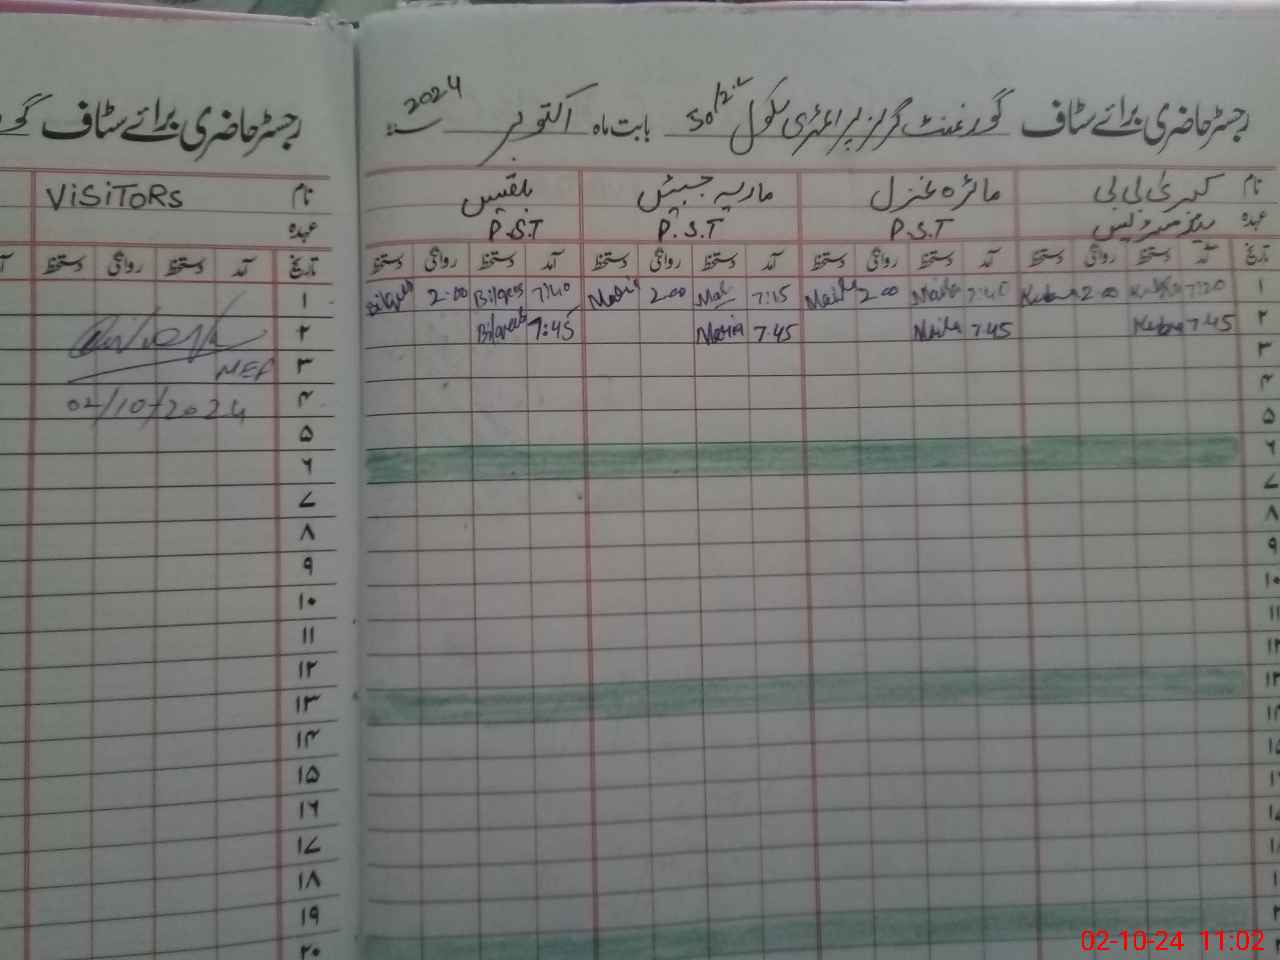 رجسٹر حاضری برائے سٹاف گورنمنٹ گرلز پرائمری سکول 50/2.L بابت ماہ اکتوبر سنہ 2024
نام کبریٰ بی بی مائرہ غزل ماریہ بلقیس
عہدہ P.S.T P.S.T P.S.T
تاریخ آمد دستخط روانگی دستخط آمد دستخط روانگی دستخط آمد دستخط روانگی دستخط آمد دستخط روانگی دستخط
۱ 7:20 Kubra 2:00 Kubra 7:40 Maira 2:00 Maira 7:15 Mar 2:00 Maria 7:40 Bilqees 2:00 Bilqees
۲ 7:45 Kubra 7:45 Maira 7:45 Maria 7:45 Bilqees
۳
۴
۵
۶
۷
۸
۹
۱۰
۱۱
۱۲
۱۳
رجسٹر حاضری برائے سٹاف
نام VISITORS
عہدہ
تاریخ آمد دستخط روانگی دستخط
۱
۲
۳
۴ 02/10/2024
۵
۶
۷
۸
۹
۱۰
۱۱
۱۲
۱۳
۱۴
۱۵
۱۶
۱۷
۱۸
۱۹
۲۰
02-10-24 11:02